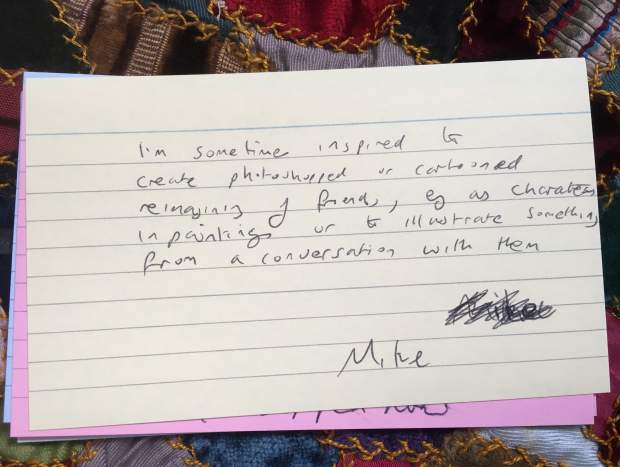 I'm sometime inspired to
create photoshopped or cartooned
reimagining of friends, eg as charaters
in paintings or to illustrate something
from a conversation with them
Mike